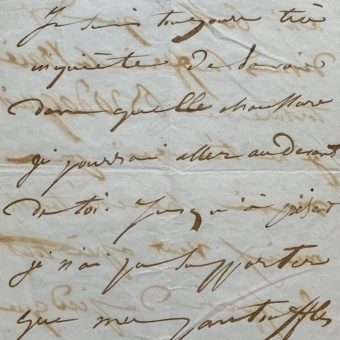 Je suis toujours très
inquiète de savoir
dans quelle chaussure
je pourrai aller au devant
de toi. Jusqu'à présent
je n'ai pu supporter
que mes pantoufles